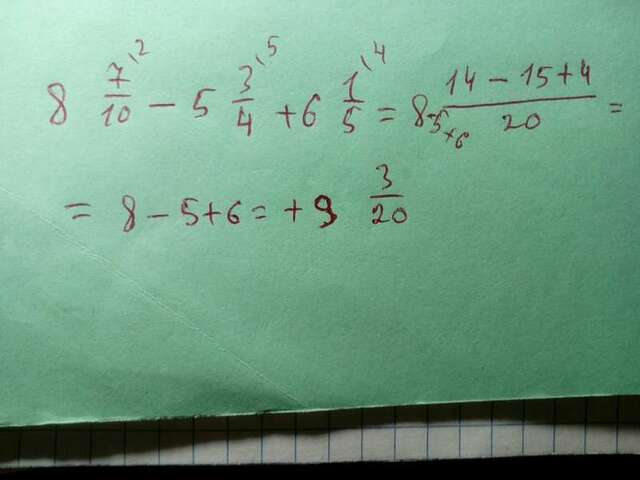 8 7\2/10 − 5 3\5/4 + 6 1\4/5 = 8−5+6 14 − 15+4/20 =
= 8 − 5+6 = + 9 3/20